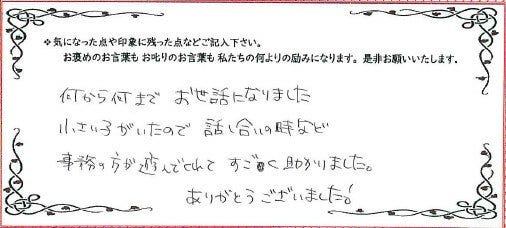 ※気になった点や印象に残った点などご記入下さい。
お褒めのお言葉も お叱りのお言葉も 私たちの何よりの励みになります。是非お願いいたします.
何から何まで お世話になりました
小さい子がいたので 話し合いの時など
事務の方が遊んでくれて すごく助かりました。
ありがとうございました!